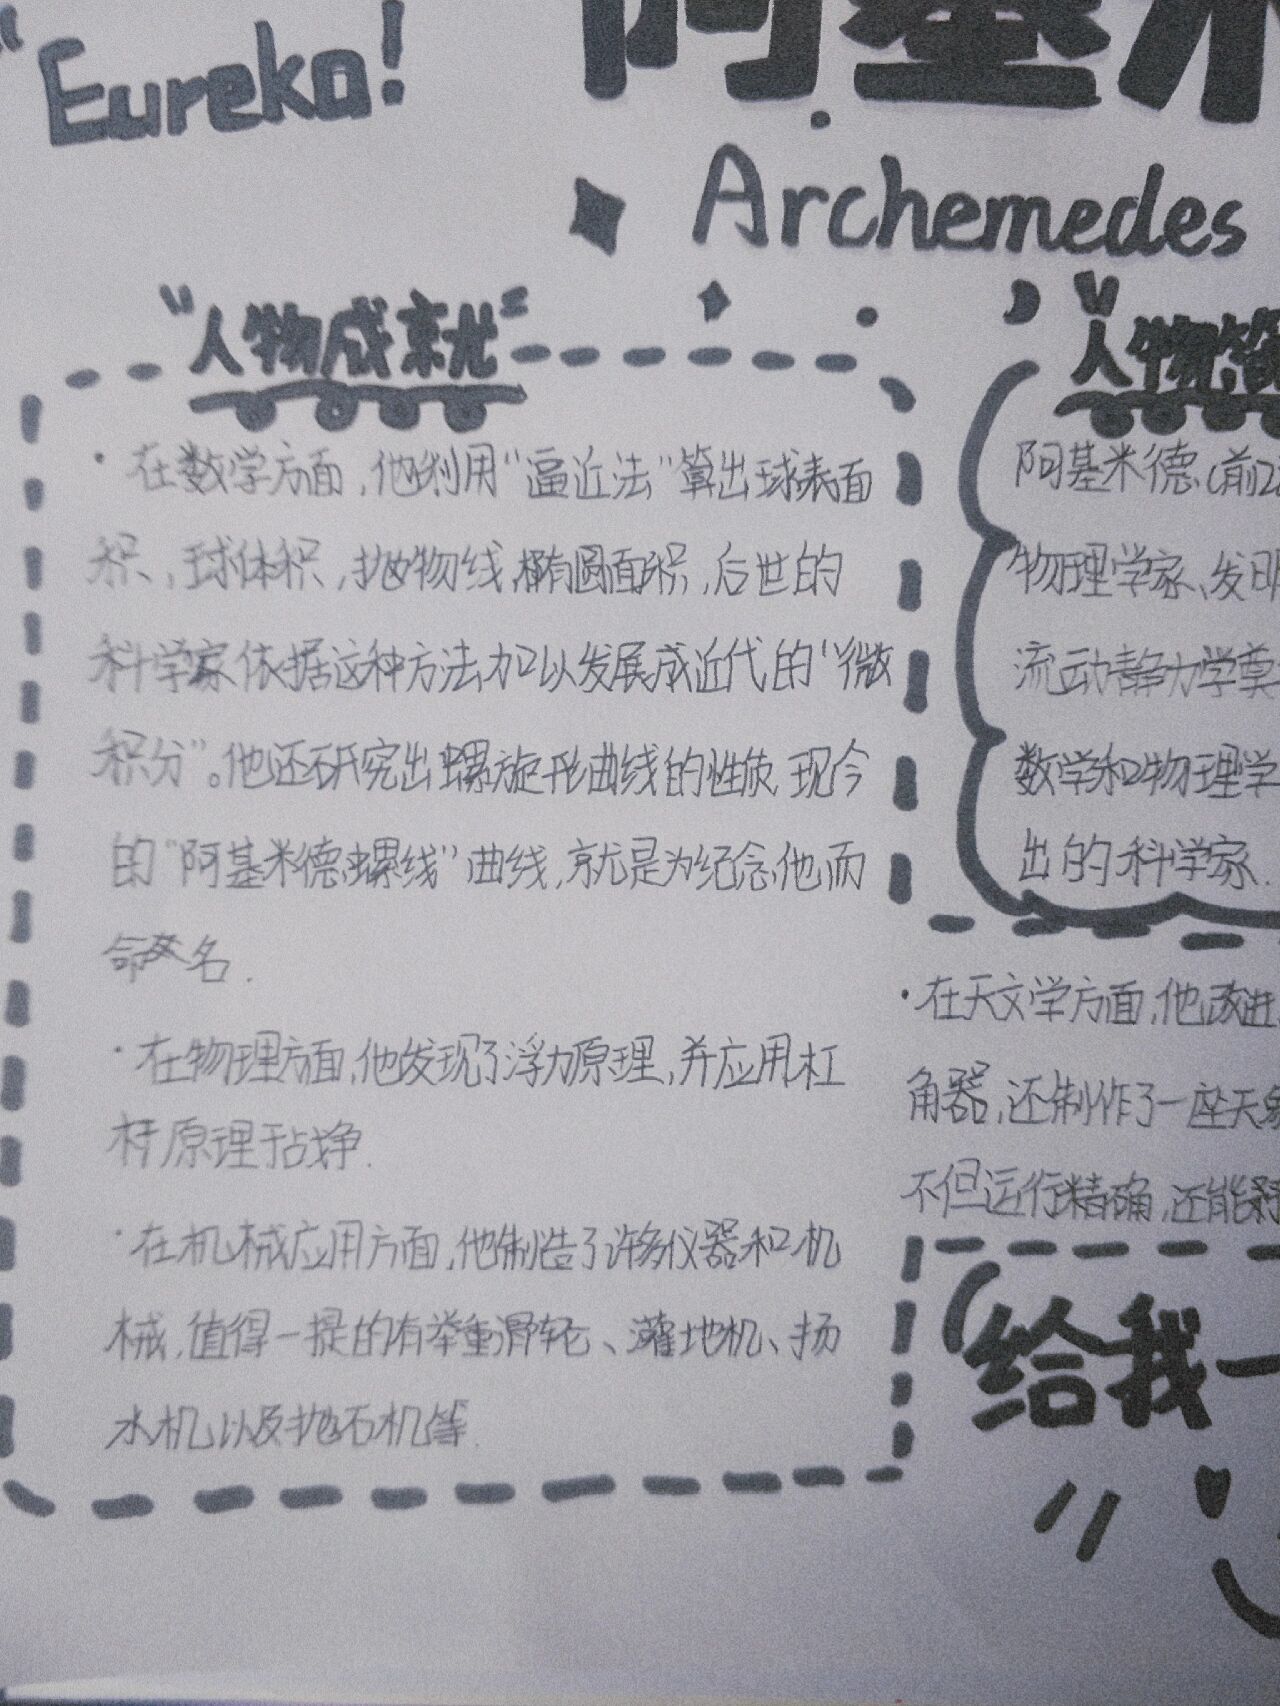 "Eureka!
阿基米
Archemedes
"人物成就"
·在数学方面,他利用"逼近法"算出球表面
积、,球体积,抛物线,椭圆面积,后世的
科学家依据这种方法加以发展成近代的"微
积分"。他还研究出螺旋形曲线的性质,现今
的"阿基米德螺线"曲线,就是为纪念他而
命名.
·在物理方面,他发现了浮力原理,并应用杠
杆原理于战争.
·在机械应用方面,他制造了许多仪器和机
械,值得一提的有举重滑轮、灌地机、扬
水机以及抛石机等.
"人物简
阿基米德(前2
物理学家、发明
流动静力学奠
数学和物理学
出的科学家.
·在天文学方面,他改进
角器,还制作了一座天象
不但运行精确,还能
给我一